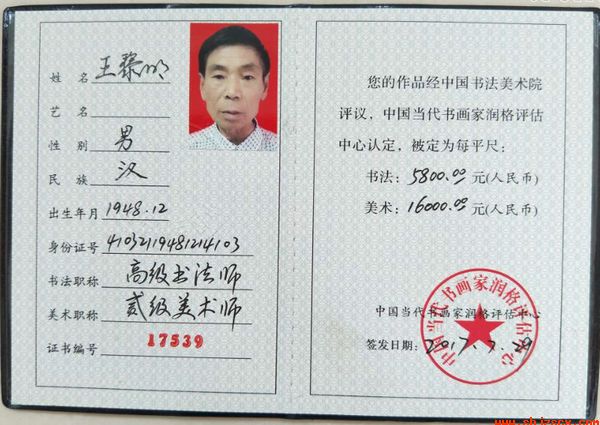 姓名 王黎明
艺名
性别 男
民族 汉
出生年月 1948.12
身份证号
书法职称 高级书法师
美术职称 贰级美术师
证书编号 17539
您的作品经中国书法美术院
评议，中国当代书画家润格评估
中心认定，被定为每平尺：
书法：5800.00元(人民币)
美术：16000.00元(人民币)
中国当代书画家润格评估中心
中国当代书画家润格评估中心
签发日期：